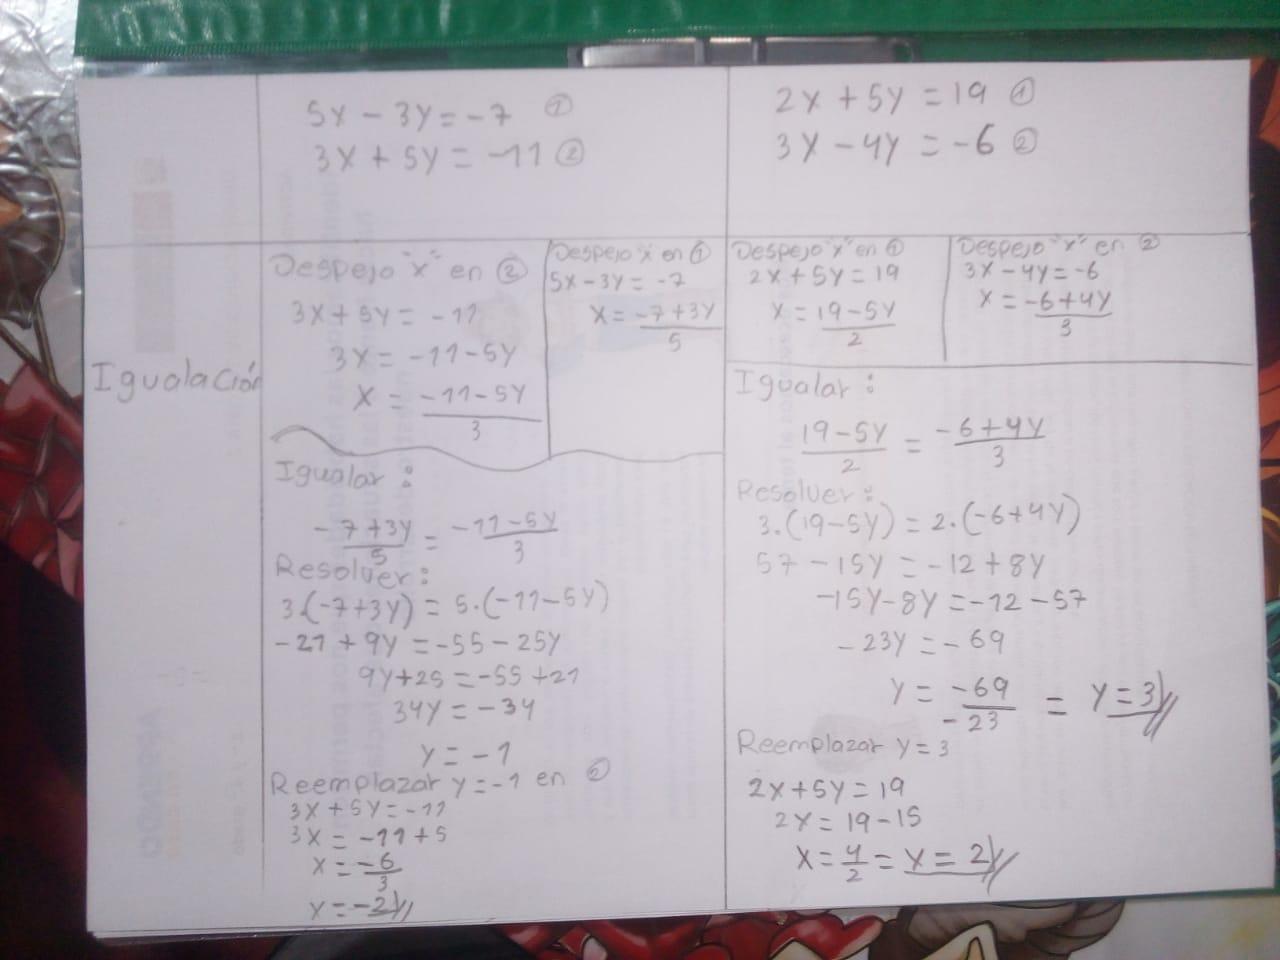 5x - 3y = -7 ①
3x + 5y = -11 ②
2x + 5y = 19 ①
3x - 4y = -6 ②
Igualación
Despejo "x" en ②
3x + 5y = -11
3x = -11 - 5y
x = -11 - 5y
3
Despejo "x" en ①
5x - 3y = -7
x = -7 + 3y
5
Igualar :
-7 + 3y = -11 - 5y
5 3
Resolver :
3.(-7 + 3y) = 5.(-11 - 5y)
-21 + 9y = -55 - 25y
9y + 25 = -55 + 21
34y = -34
y = -1
Reemplazar y = -1 en ②
3x + 5y = -11
3x = -11 + 5
x = -6
3
x = -2//
Despejo "x" en ①
2x + 5y = 19
x = 19 - 5y
2
Despejo "x" en ②
3x - 4y = -6
x = -6 + 4y
3
Igualar :
19 - 5y = -6 + 4y
2 3
Resolver :
3.(19 - 5y) = 2.(-6 + 4y)
57 - 15y = -12 + 8y
-15y - 8y = -12 - 57
-23y = -69
y = -69 = y = 3//
-23
Reemplazar y = 3
2x + 5y = 19
2x = 19 - 15
x = 4 = x = 2//
2